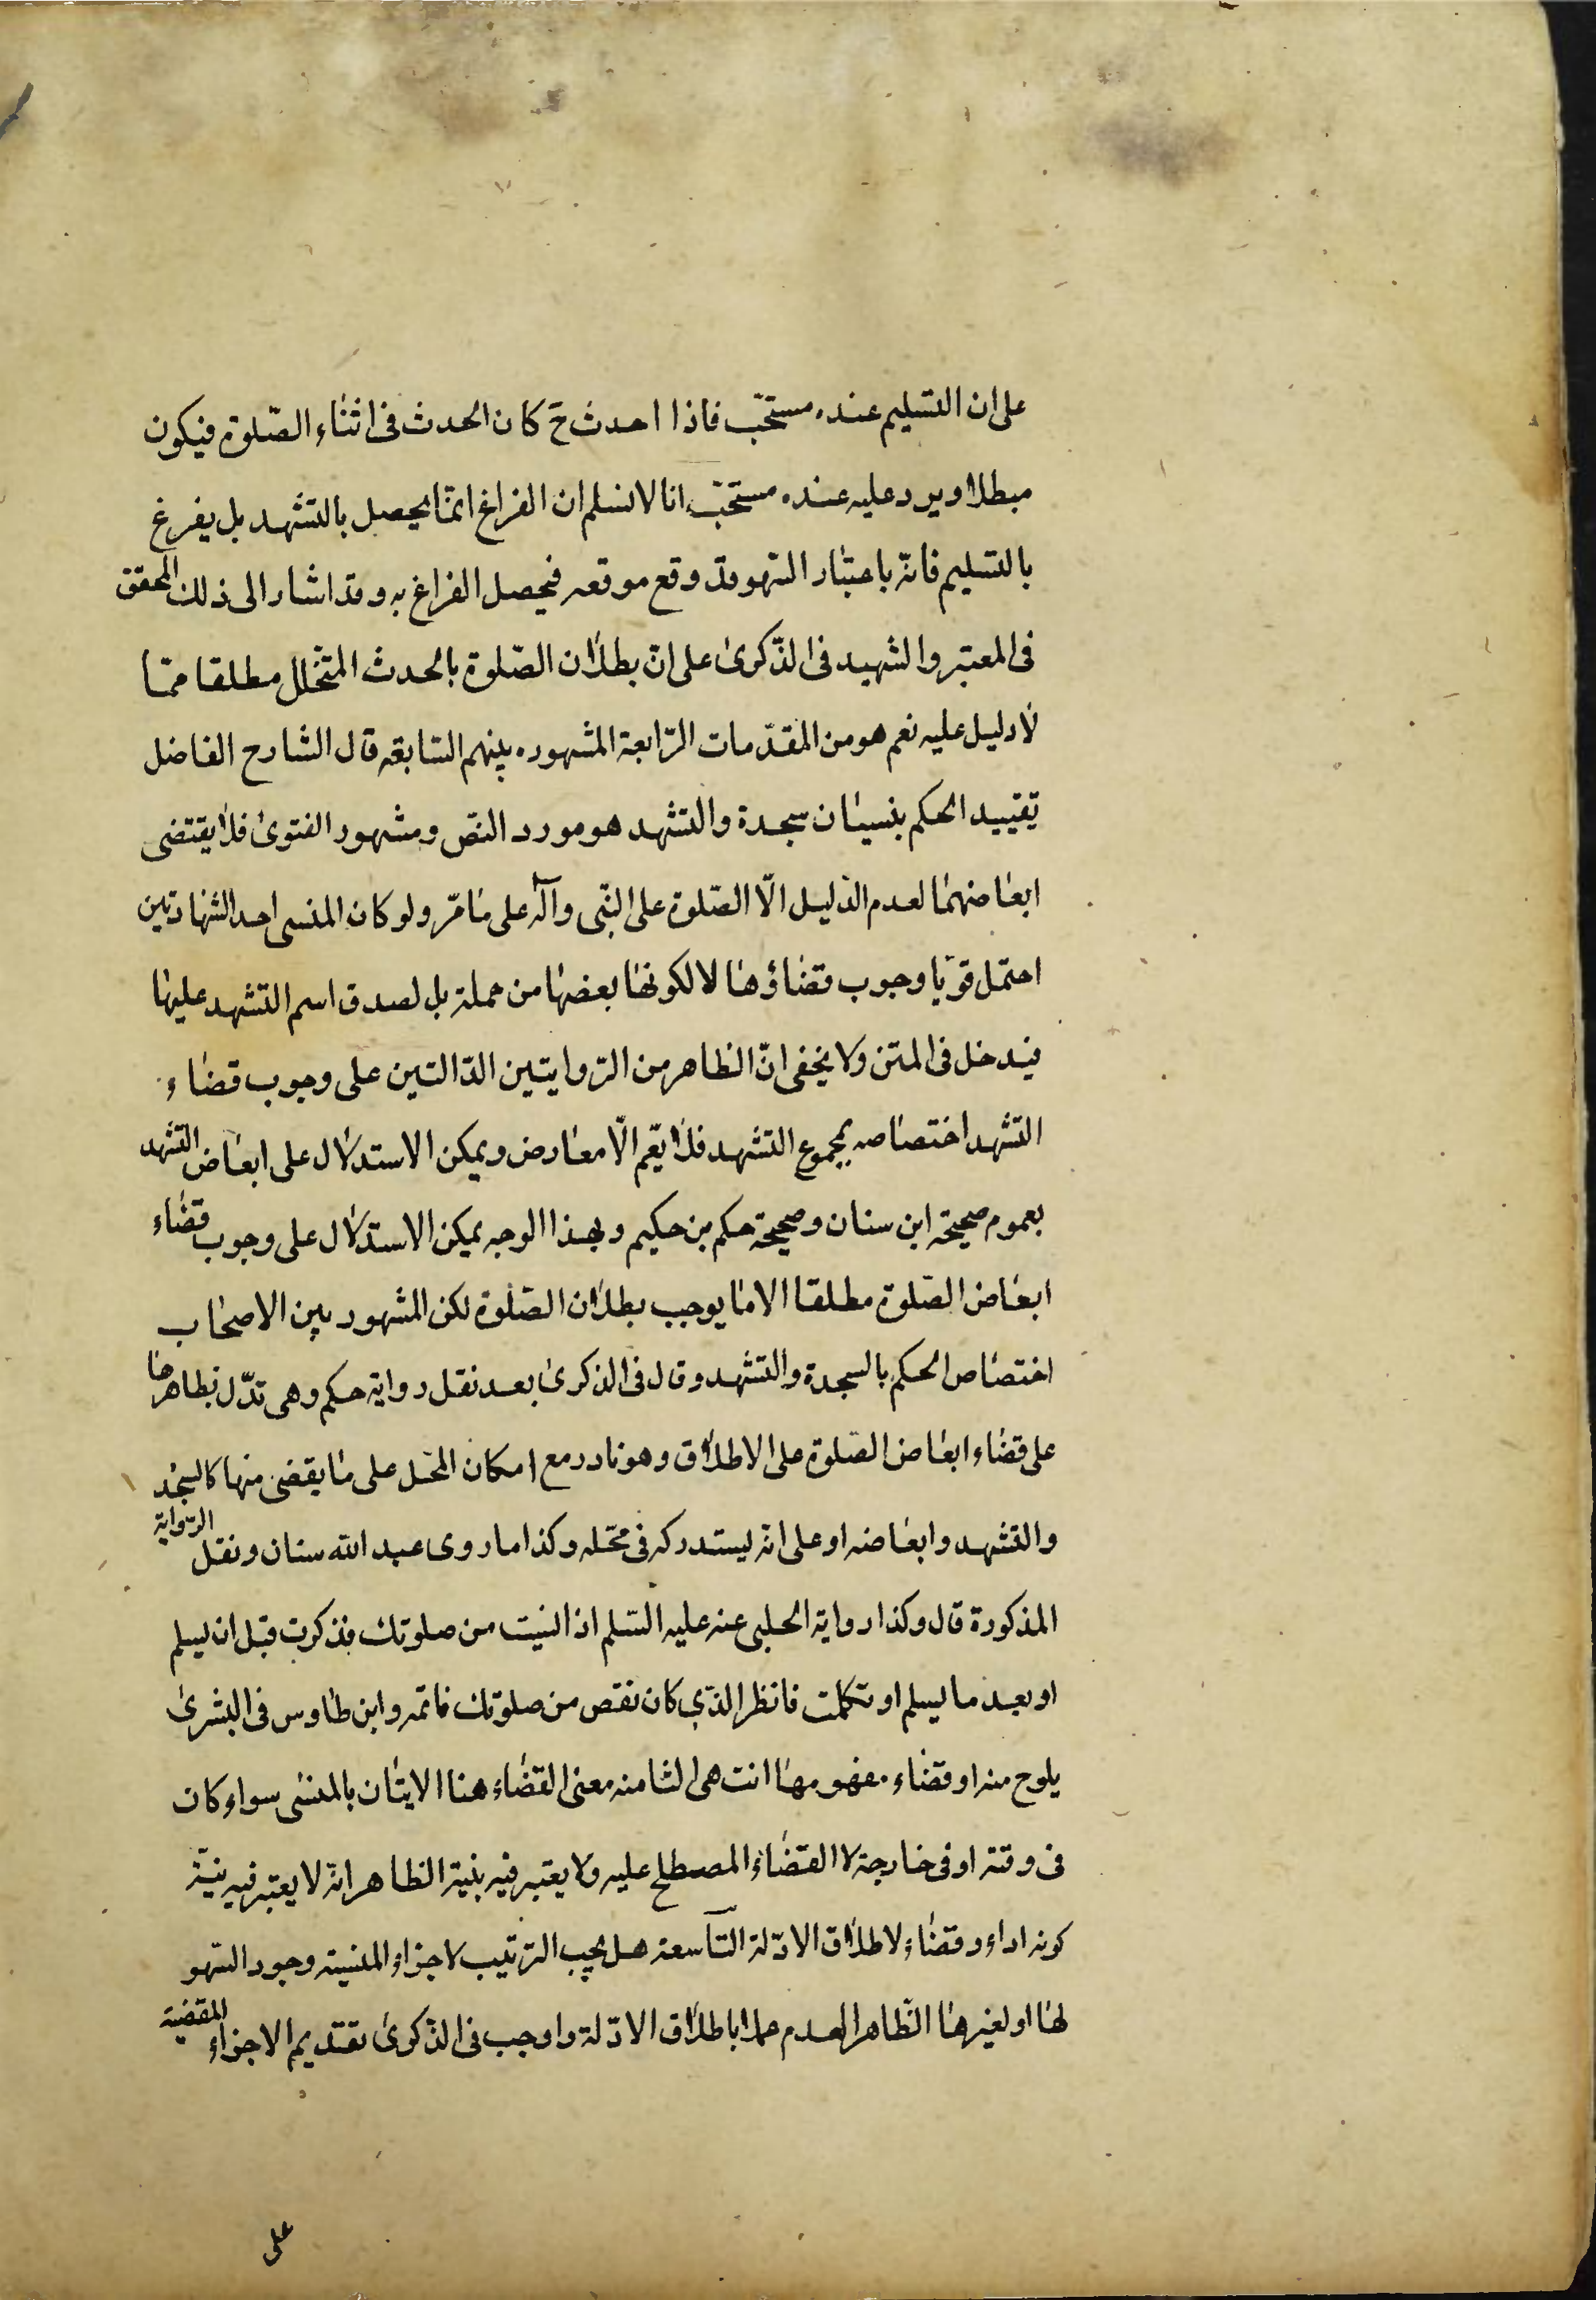 على ان التسليم عنده مستحبّ فاذا احدث ح كان الحدث فى اثناء الصّلوة فيكون
مبطلا ويرد عليه عنده مستحبّ انا لا نسلم ان الفراغ انمّا يحصل بالتشهد بل يفرغ
بالتسليم فانّه باعتبار السّهو قد وقع موقعه فيحصل الفراغ به وقد اشار الى ذلك المحقق
فى المعتبر والشهيد فى الذّكرى على انّ بطلان الصّلوة بالحدث المتخلّل مطلقا ممّا
لا دليل عليه نعم هو من المقدّمات الرّابعة المشهوره بينهم السّابقه قال الشارح الفاضل
تقييد الحكم بنسيان سجدة والتشهد هو مورد النصّ ومشهور الفتوى فلا يقتضى
ابعاضهما لعدم الدّليل الّا الصّلوة على النّبى وآله على مامرّ ولو كان المنسى احد الشهادتين
احتمل قويّا وجوب قضاؤها لا لكونها بعضها من جملة بل لصدق اسم التشهد عليها
فيدخل فى المتن ولا يخفى انّ الظاهر من الرّوايتين الدّالتين على وجوب قضاء
التشهد اختصاصه بمجموع التشهد فلا يتّم الّا معارض ويمكن الاستدلال على ابعاض التشهد
بعموم صحيحة ابن سنان وصحيحة حكم بن حكيم وبهذا الوجه يمكن الاستدلال على وجوب قضاء
ابعاض الصّلوة مطلقا الا ما يوجب بطلان الصّلوة لكن المشهور بين الاصحاب
اختصاص الحكم بالسجدة والتشهد وقال فى الذكرى بعد نقل رواية حكم وهى تدّل بظاهرها
على قضاء ابعاض الصّلوة على الاطلاق وهو نادر مع امكان الحمل على ما يقضى منها كالسجد
والتشهد وابعاضه او على انّه يستدركه فى محّله وكذا ما روى عبد الله سنان ونقل الرّواية
المذكورة قال وكذا رواية الحلبى عنه عليه السّلم اذا نسيت من صلوتك فذكرت قبل ان يسلم
او بعد ما يسلم او تكلمت فانظر الذّى كان نقص من صلوتك فاتمّه وابن طاوس فى البشرى
يلوح منه او قضاء مفهومها انتهى الثامنه معنى القضاء هنا الايتان بالمنسّى سواء كان
فى وقته او فى خارجة لا القضاء المصطلح عليه ولا يعتبر فيه بنية الظاهر انّه لا يعتبر فيه نيّة
كونه اداء وقضاء لاطلاق الادّلة التّاسعة هل يجب الترتيب لاجزاء المنسيّة وجود السّهو
لها او لغيرها الظّاهر العدم عملا باطلاق الادّلة واوجب فى الذّكرى تقديم الاجزاء المقضيّة
على